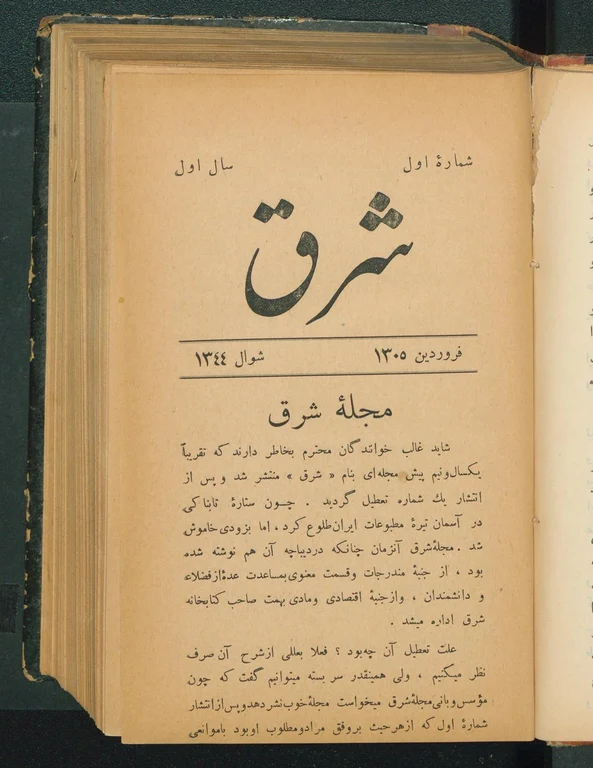 شمارهٔ اول
سال اول
شرق
فروردین ۱۳۰۵
شوال ۱۳٤٤
مجلهٔ شرق
شاید غالب خوانندگان محترم بخاطر دارند که تقریباً
یکسال‌ونیم پیش مجله‌ای بنام « شرق » منتشر شد و پس از
انتشار یك شماره تعطیل گردید . چــون ستارهٔ تابناکی
در آسمان تیرهٔ مطبوعات ایران طلوع کرد ، اما بزودی خاموش
شد . مجلهٔ شرق آنزمان چنانکه دردیباچه آن هم نوشته شده
بود ، از جنبهٔ مندرجات وقسمت معنوی بمساعدت عدهٔ ازفضلاء
و دانشمندان ، وازجنبهٔ اقتصادی ومادی بهمت صاحب کتابخانه
شرق اداره میشد .
علت تعطیل آن چه‌بود ؟ فعلا بعللی ازشرح آن صرف
نظر میکنیم ، ولی همینقدر سر بسته میتوانیم گفت که چون
مؤسس وبانی مجلهٔ شرق میخواست مجلهٔ خوب نشر دهد و پس از انتشار
شمارهٔ اول که ازهرحیث بروفق مراد ومطلوب اوبود باموانعی